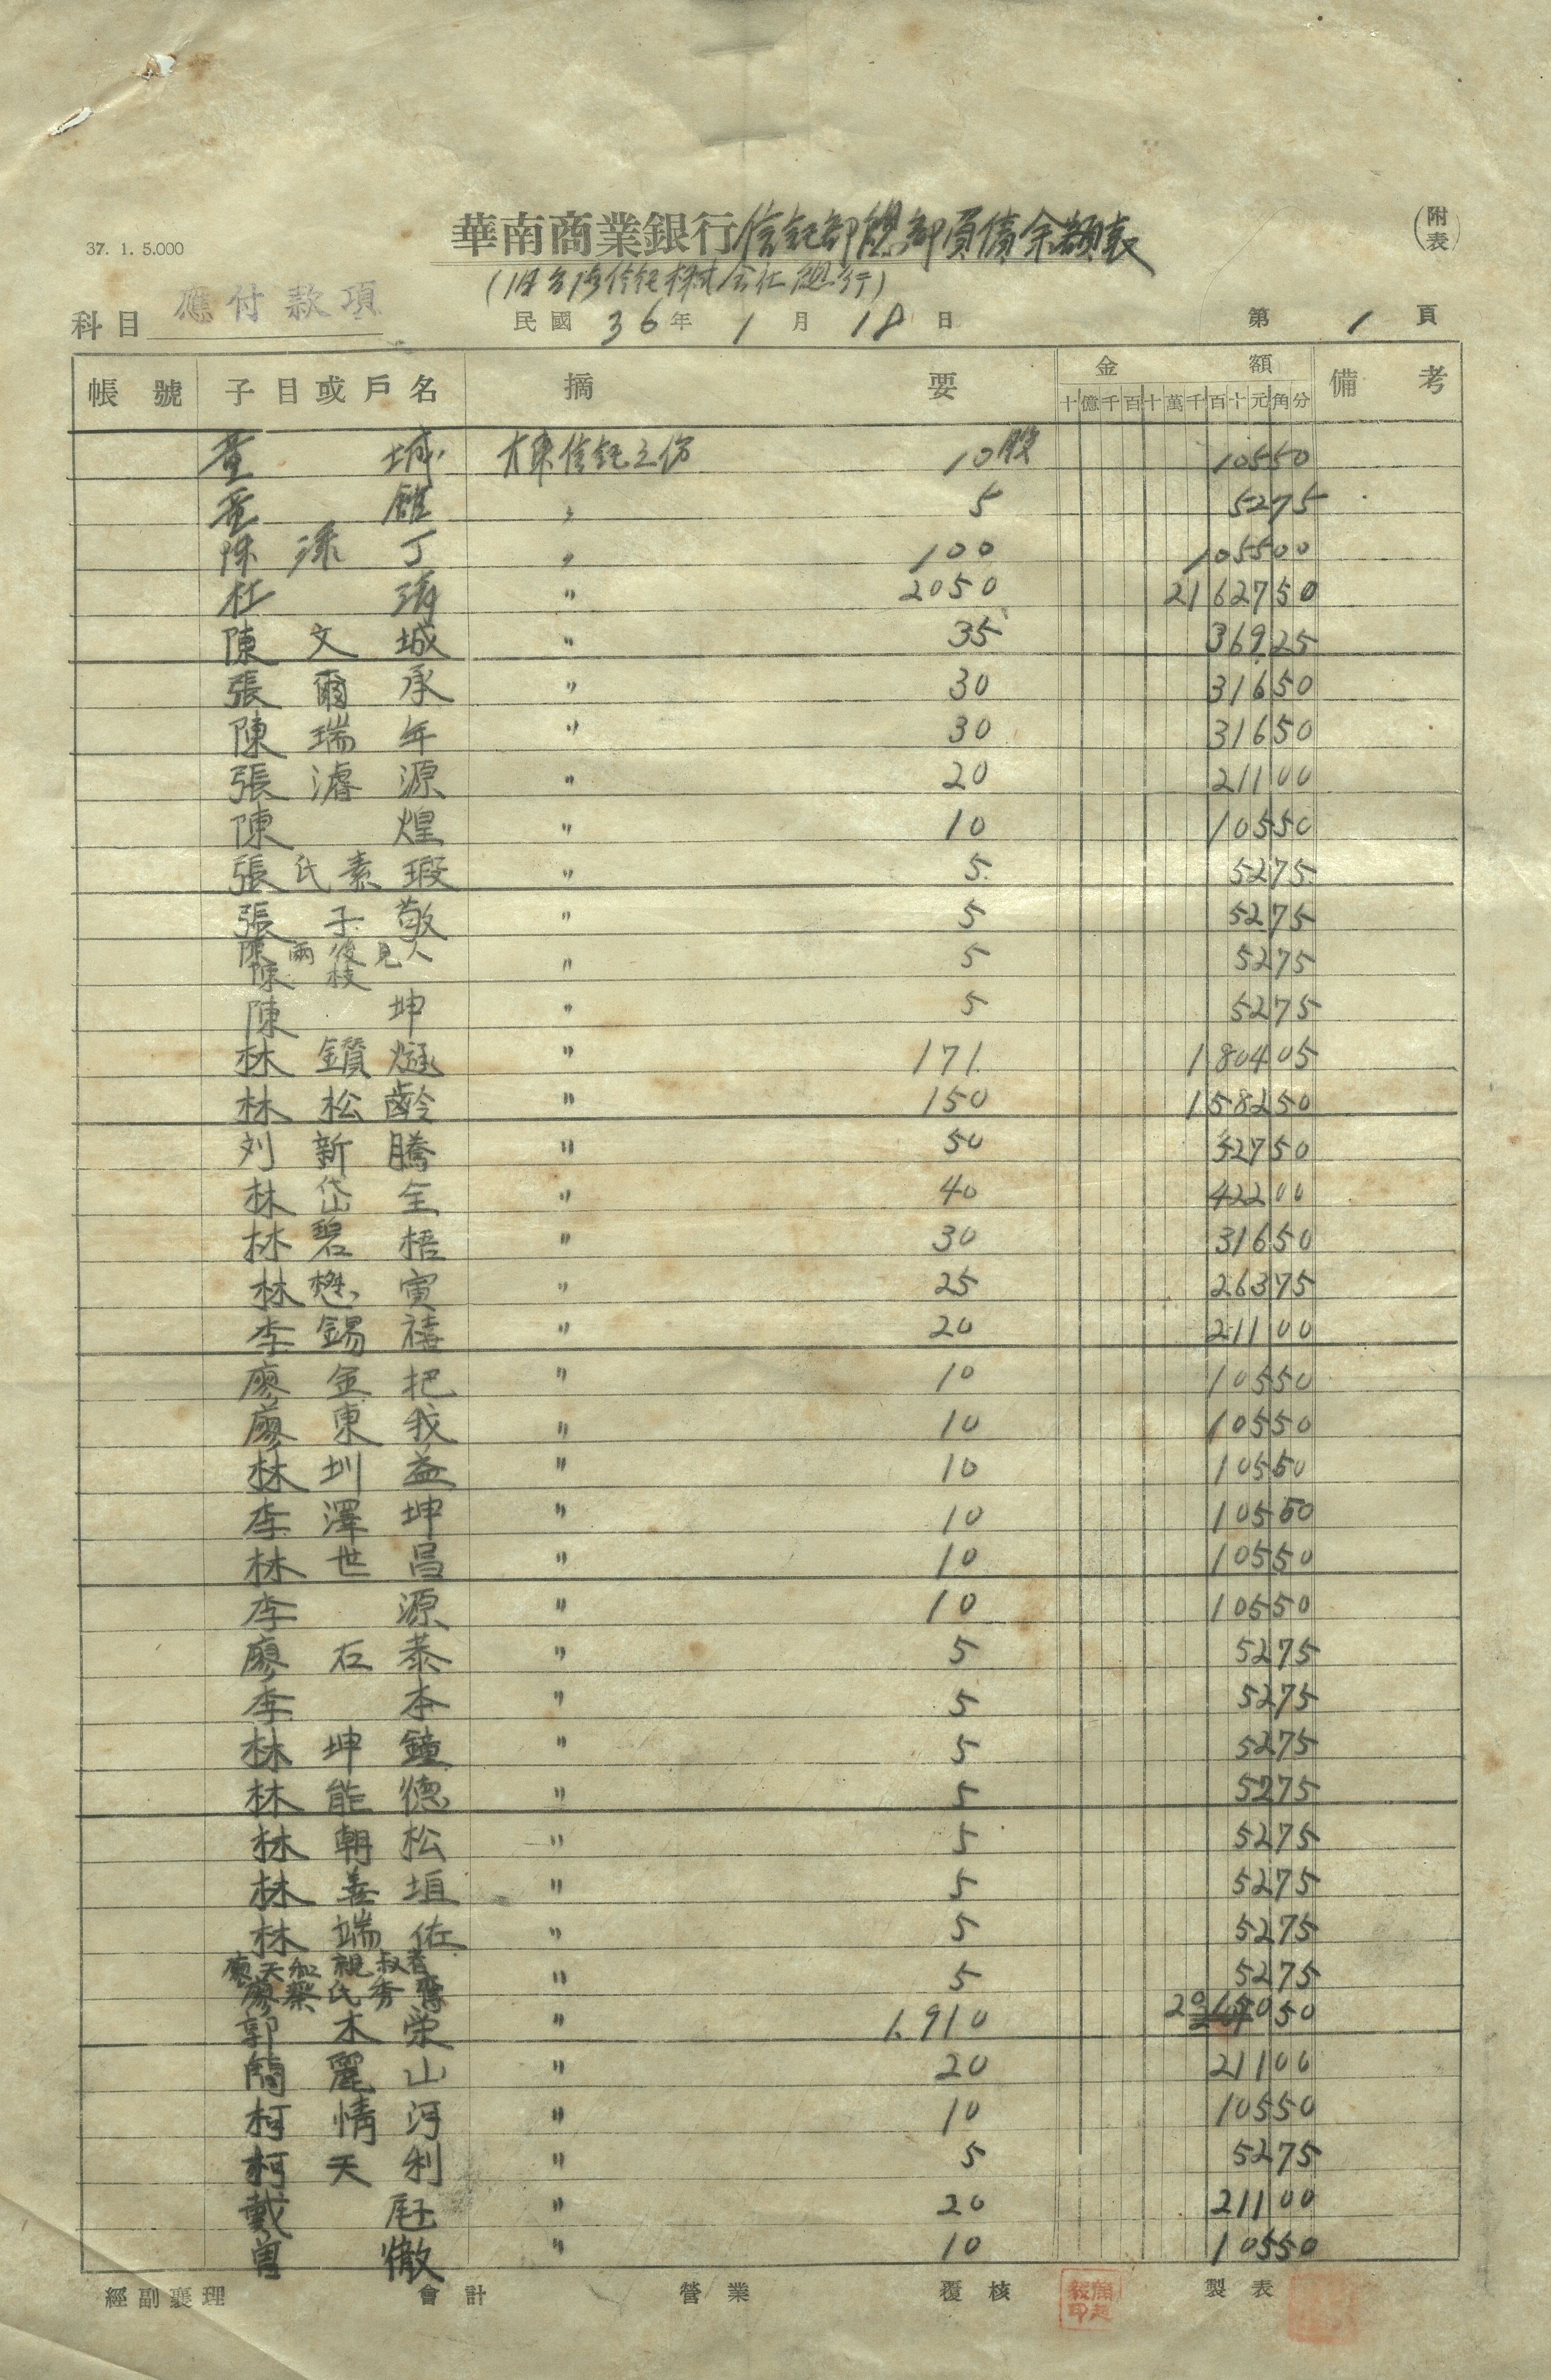 37. 1. 5.000
華南商業銀行信託部總部負債余額表
(附表)
(旧台湾信託株式会社總行)
科目 應付款項
民國 36 年 1 月 18 日 第 1 頁
帳號 子目或戶名 摘要 金額 備考
十億千百十萬千百十元角分
童 城 大東信託之份 10股 10550
童 〃 5 5275
陳 添 丁 〃 100 105500
杜 〃 2050 2162750
陳 文 城 〃 35 36925
張 爾 承 〃 30 31650
陳 瑞 年 〃 30 31650
張 濬 源 〃 20 21100
陳 煌 〃 10 10550
張 氏 素 瑕 〃 5 5275
張 子 敬 〃 5 5275
陳 兩 後 見 人
陳 枝 〃 5 5275
陳 坤 〃 5 5275
林 鑽 燧 〃 171 180405
林 松 齡 〃 150 158250
刘 新 騰 〃 50 52750
林 岱 全 〃 40 42200
林 碧 梧 〃 30 31650
林 懋 寅 〃 25 26375
李 錫 禧 〃 20 21100
廖 金 把 〃 10 10550
廖 東 我 〃 10 10550
林 圳 益 〃 10 10550
李 澤 坤 〃 10 10550
林 世 昌 〃 10 10550
李 源 〃 10 10550
廖 石 恭 〃 5 5275
李 本 〃 5 5275
林 坤 鐘 〃 5 5275
林 能 德 〃 5 5275
林 朝 松 〃 5 5275
林 善 垣 〃 5 5275
林 端 佐 〃 5 5275
廖 天 親 叔
廖 蔡 氏 秀 〃 5 5275
郭 木 栄 〃 1,910 2015050
簡 麗 山 〃 20 21100
柯 情 河 〃 10 10550
柯 天 利 〃 5 5275
戴 〃 20 21100
曾 徹 〃 10 10550
經副襄理 會計 營業 覆核 製表